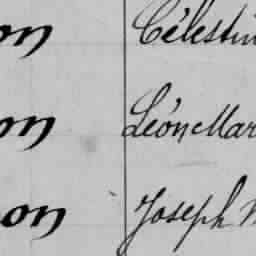 on Célestin
on Léon Mar
on Joseph